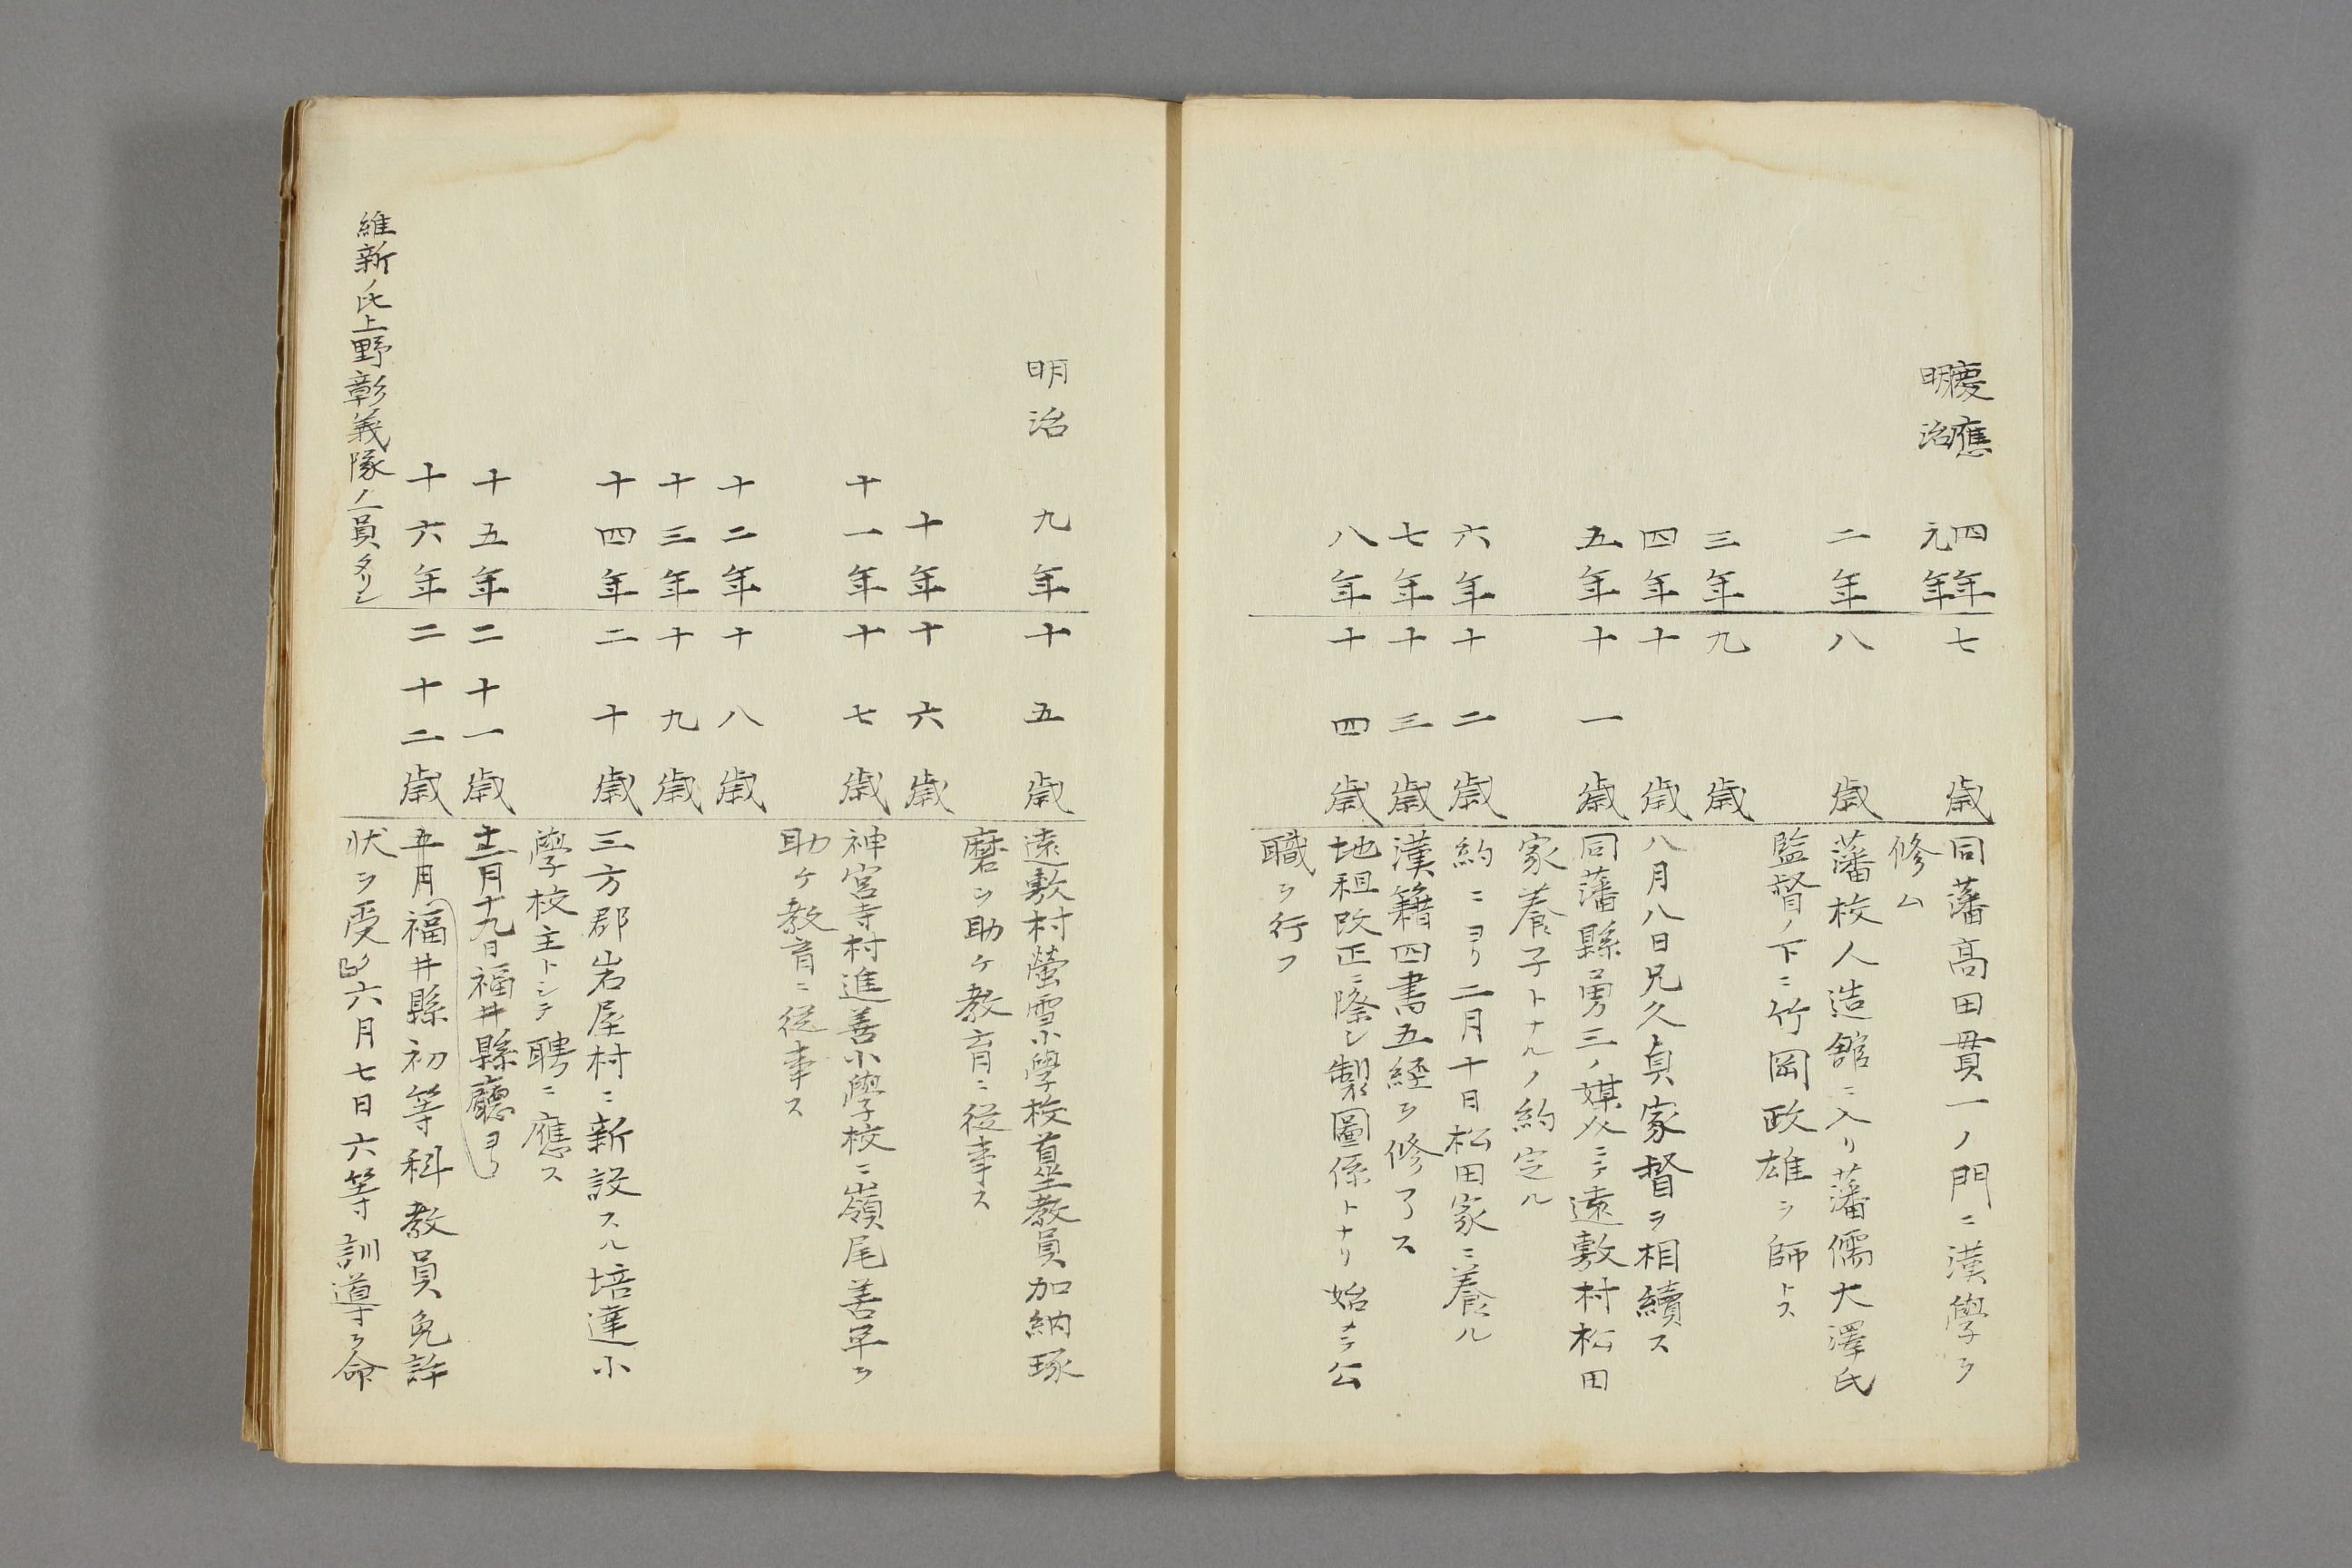 慶應四年 七歳 同藩高田貫一ノ門ニ漢學ヲ
明治元年
修ム
二年 八歳 藩校人造館ニ入リ藩儒大澤氏
監督ノ下ニ竹岡政雄ヲ師トス
三年 九歳
四年 十歳 八月八日兄久貞家督ヲ相續ス
五年 十一歳 同藩縣勇三ノ媒介ニテ遠敷村松田
家養子トナルノ約定ル
六年 十二歳 約ニヨリ二月十日松田家ニ養ル
七年 十三歳 漢籍四書五経ヲ修了ス
八年 十四歳 地租改正ニ際シ製圖係トナリ始メテ公
職ヲ行フ
明治九年 十五歳 遠敷村螢雪小學校首坐教員加納琢
磨ヲ助ケ教育ニ従事ス
十年 十六歳
十一年 十七歳 神宮寺村進善小學校ニ嶺尾善卒ヲ
助ケ教育ニ従事ス
十二年 十八歳
十三年 十九歳
十四年 二十歳 三方郡岩屋村ニ新設スル培達小
學校主トシテ聘ニ應ス
十五年 二十一歳 十二月十九日福井縣廳ヨリ
十六年 二十二歳 五月福井縣初等科教員免許
維新ノ氏上野彰義隊ノ一員タリシ
状ヲ受 六月七日六等訓導ヲ命